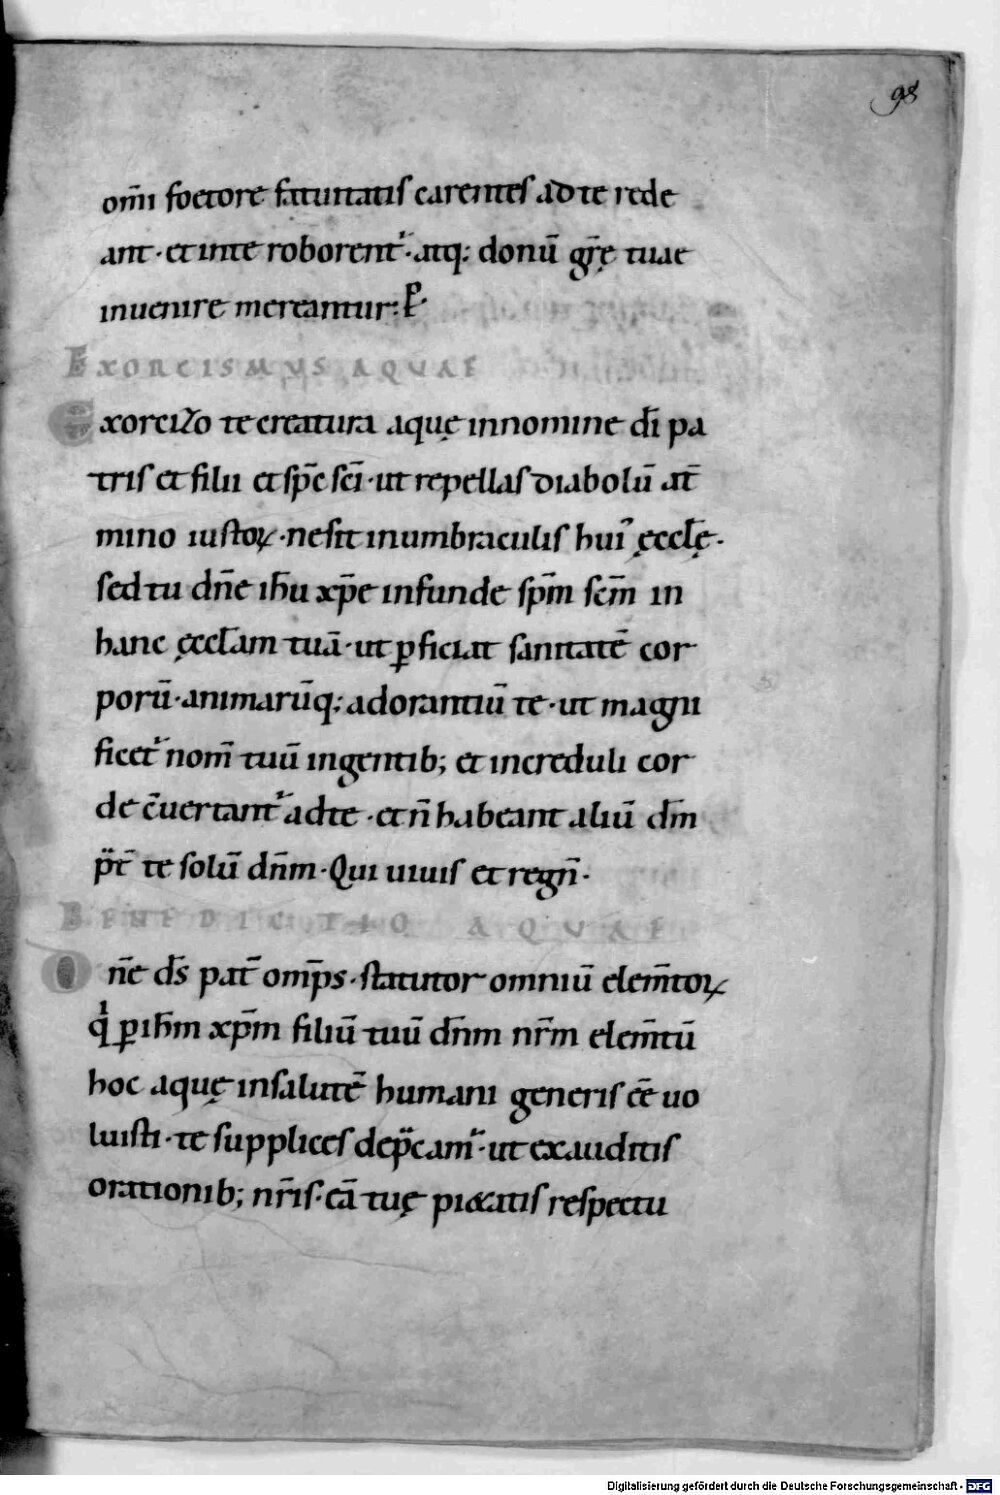 98
om̅i foetore fatuitatis carentes ad te rede
ant · et in te roborent᷑ · atq; donū gr̅ę tuae
inuenire mereantur: P̲·
EXORCISMUS AQUAE
Exorcizo te creatura aquę in nomine di̅ pa
tris et filii et sp̅c sc̅i · ut repellas diabolū at̅
mino iustoꝝ · ne sit in umbraculis hui᾽ ęccl̅ę ·
sed tu dn̅e ih̅u xp̅e infunde sp̅m sc̅m in
hanc ęccl̅am tuā · ut ꝓficiat sanitatē cor
porū · animarūq; adorantiū te · ut magni
ficet᷑ nom̅ tuū in gentib; et increduli cor
de c̅uertant᷑ ad te · et n̅ habeant aliū dm̅
p̈t̅ te solū dn̅m · Qui uiuis et regn̅ ·
BENEDICTIO AQUAE
Dn̅e ds̅ pat̅ om̅ps · statutor omniū elem̅toꝝ
qͥ ꝑ ih̅m xp̅m filiū tuū dn̅m nr̅m elem̅tū
hoc aquę in salutē humani generis e̅e uo
luisti · te supplices dep̈camͬ · ut exauditis
orationib; nr̅is · eā tuę pietatis respectu
Digitalisierung gefördert durch die Deutsche Forschungsgemeinschaft - DFG